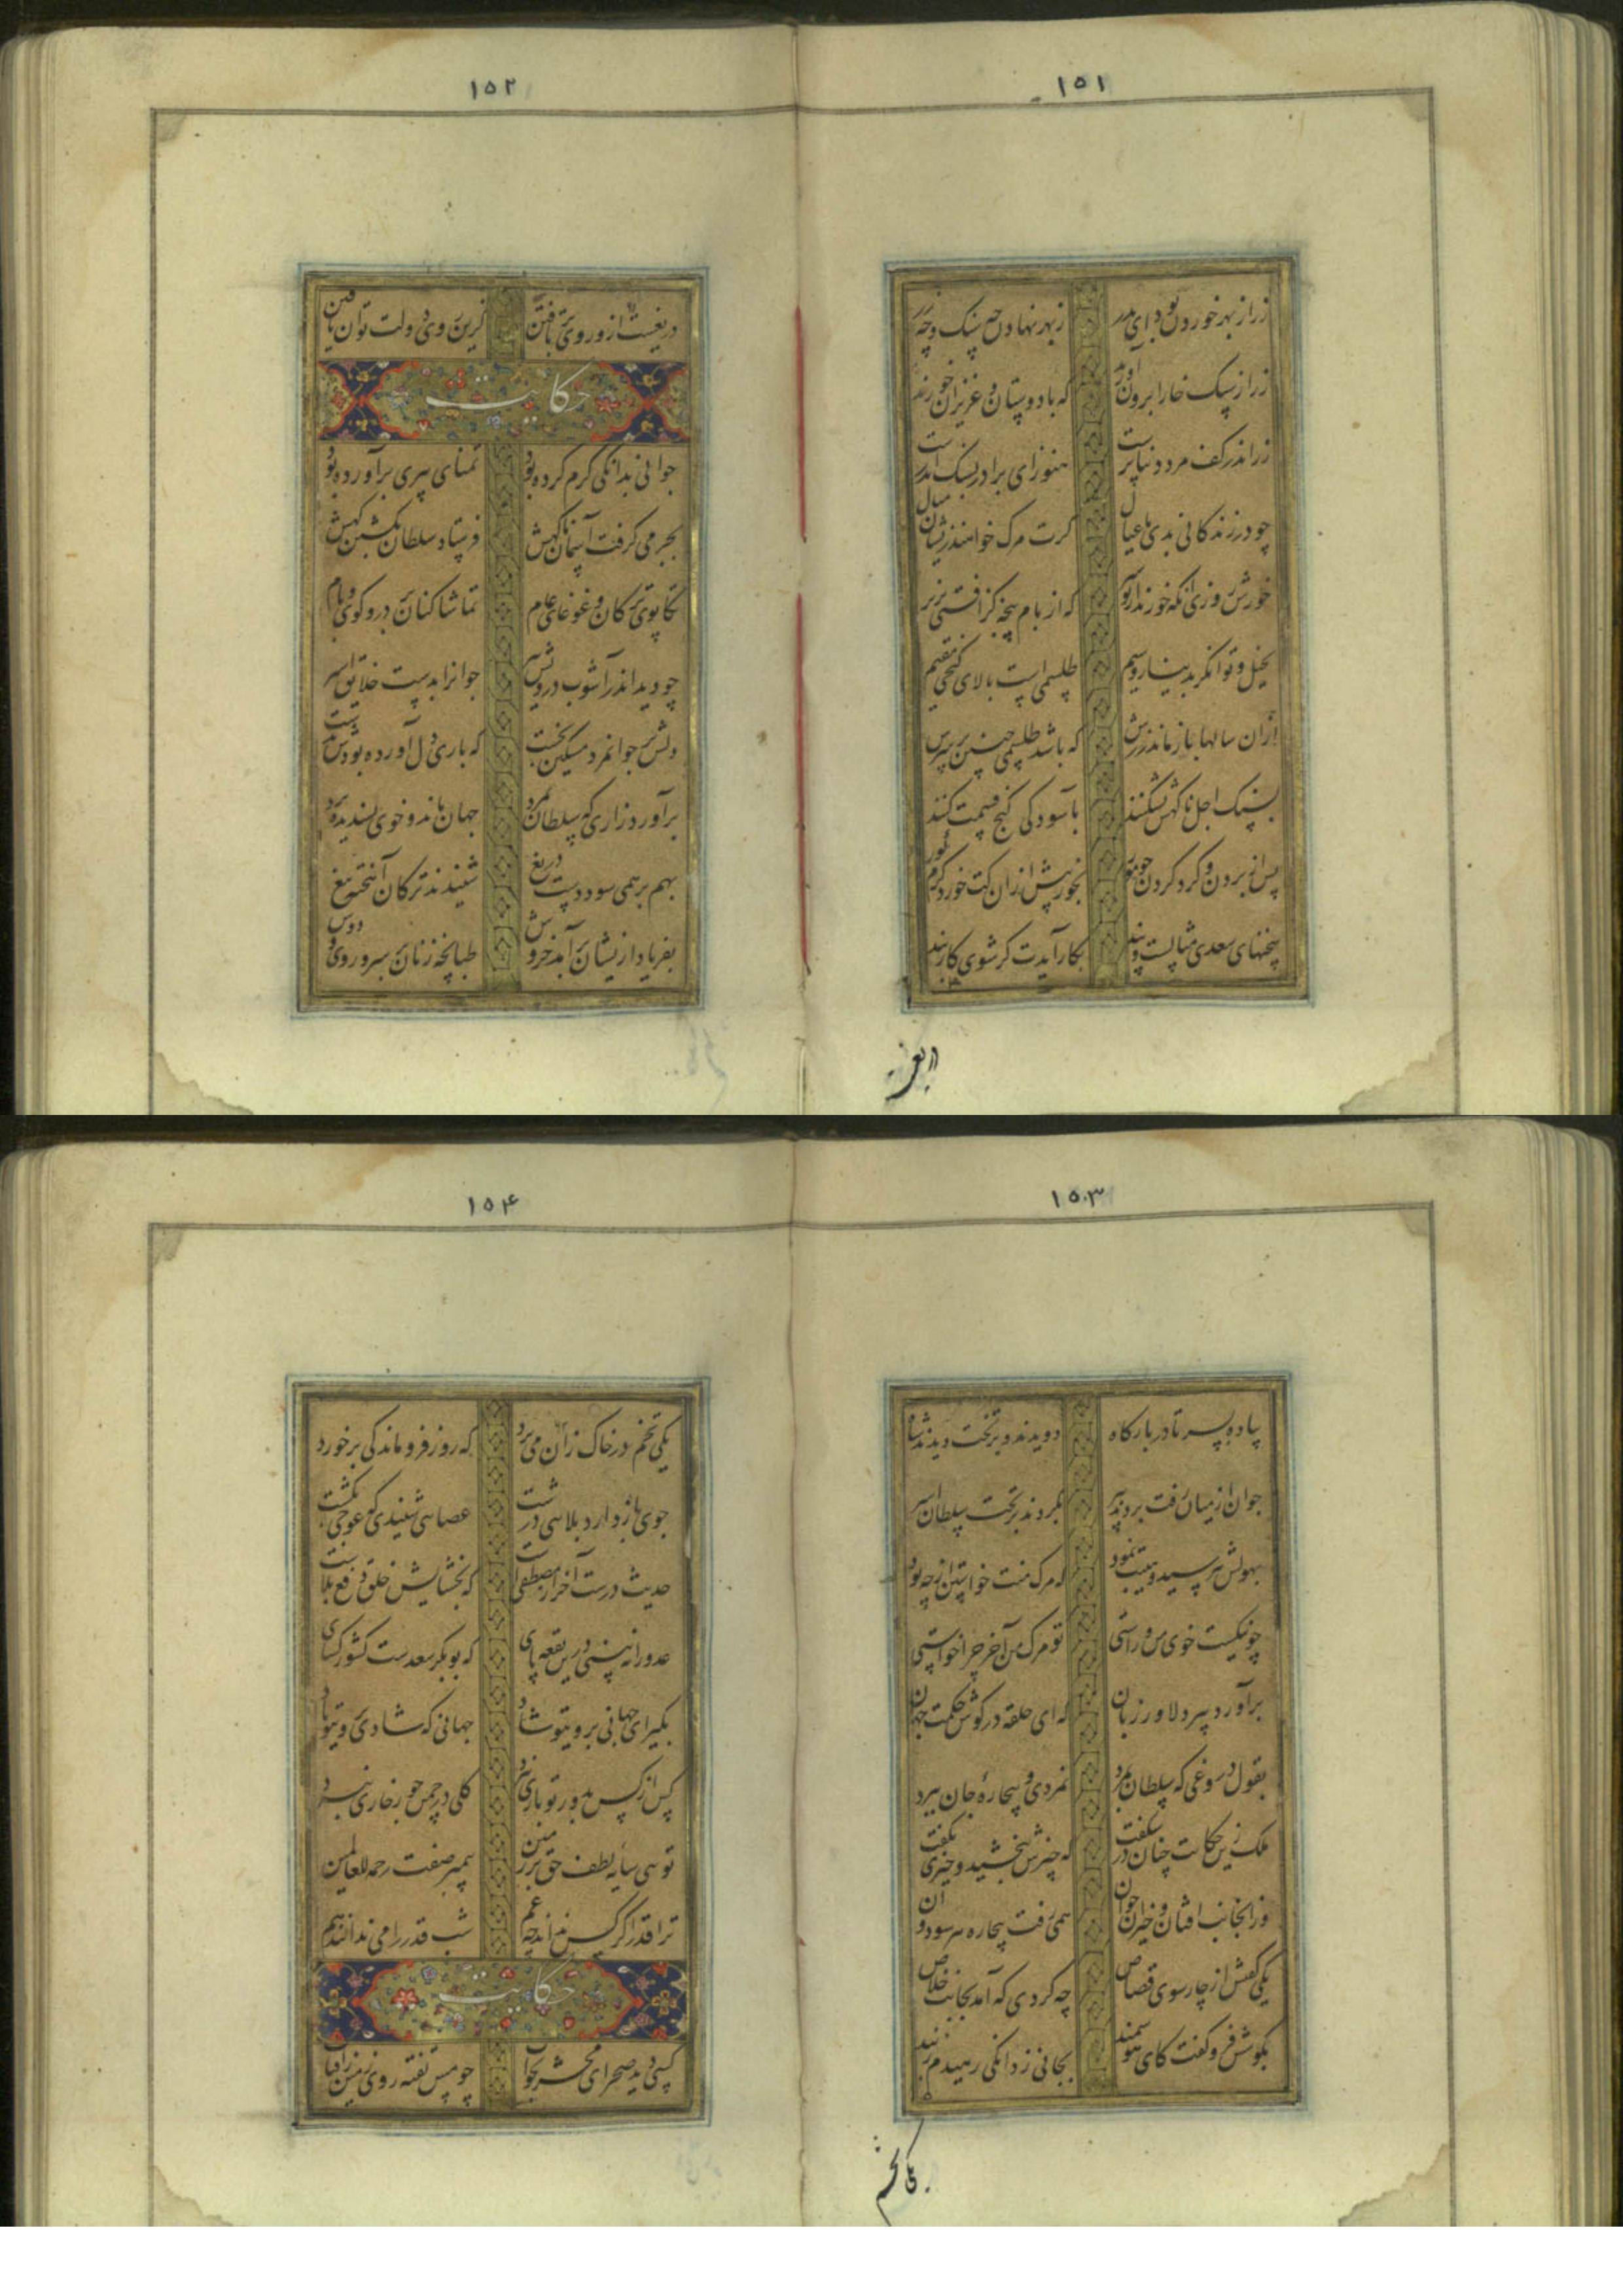 ١٥١
زر از بهر خوردن بود ای پدر ز بهر نهادن چه سنگ و چه زر
زر از سنگ خارا برون آورند که با دوستان و عزیزان خورند
زر اندر کف مرد دنیا پرست هنوز ای برادر بسنگ اندرست
چو در زندگانی بدی با عیال گرت مرگ خواهند ازیشان منال
خورند از تو سیر که از بام پنجه گز افتی بزیر
بخیل و توانگر بدینار و سیم طلسمی است بالای گنجی مقیم
ازان سالها باز ماند زرش که باشد طلسمی چنین بر سرش
بسنگ اجل ناگهش بشکنند بآسودگی گنج قسمت کنند
پس از بردن و گرد کردن چو مور بخور پیش ازان کت خورد کرم گور
سخنهای سعدی مثالست و پند بکار آیدت گر شوی کاربند
دریغ
١٥٢
دریغست ازو روی بر تافتن کزین روی دولت توان یافتن
حکایت
جوانی بدانگی کرم کرده بود تمنای پیری برآورده بود
بجرمی گرفت آسمان ناگهش فرستاد سلطان بکشتن گهش
تکاپوی ترکان و غوغای عام تماشا کنان بر در و کوی و بام
چو دید اندر آشوب درویش پیر جوانرا بدست خلایق اسیر
دلش بر جوانمرد مسکین بخست که باری دل آورده بودش بدست
برآورد زاری که سلطان بمرد جهان ماند و خوی پسندیده برد
بهم بر همی سود دست دریغ شنیدند ترکان آهخته تیغ
بفریاد ازیشان برآمد خروش طپانچه زنان بر سر و روی و دوش
١٥٣
پیاده بسر تا در بارگاه دویدند و بر تخت دیدند شاه
جوان از میان رفت و بردند پیر بگردن بر تخت سلطان اسیر
بهولش بپرسید و هیبت نمود که مرگ منت خواستن از چه بود
چو نیکست خوی من و راستی تو مرگ من آخر چرا خواستی
برآورد پیر دلاور زبان که ای حلقه در گوش حکمت جهان
بقول دروغی که سلطان بمرد نمردی و بیچارهٔ جان ببرد
ملک زین حکایت چنان در شگفت که چیزش ببخشید و چیزی نگفت
وز اینجانب افتان و خیزان جوان همی رفت بیچاره هر سو دوان
یکی گفتش از چارسوی قصاص چه کردی که آمد بجانت خلاص
بگوشش فرو گفت کای هوشمند بجانی ز دانگی رهیدم ز بند
یکی تخم
١٥٤
یکی تخم در خاک ازان می برد که روز فروماندگی بر خورد
جوی باز دارد بلائی درشت عصائی شنیدی که عوجی بکشت
حدیث درست آخر از مصطفی است که بخشایش خلق دفع بلاست
عدو را نبینی درین بقعه پای که بوبکر سعدست کشور گشای
بگیر ای جهانی بروی تو شاد جهانی که شادی بروی تو باد
کس از کس بدور تو باری نبرد گلی در چمن جور خاری نبرد
توئی سایه لطف حق بر زمین پیمبر صفت رحمة للعالمین
ترا قدر اگر کس نداند چه غم شب قدر را می ندانند هم
حکایت
کسی دید صحرای محشر بخواب چو مس تفته روی زمین ز آفتاب